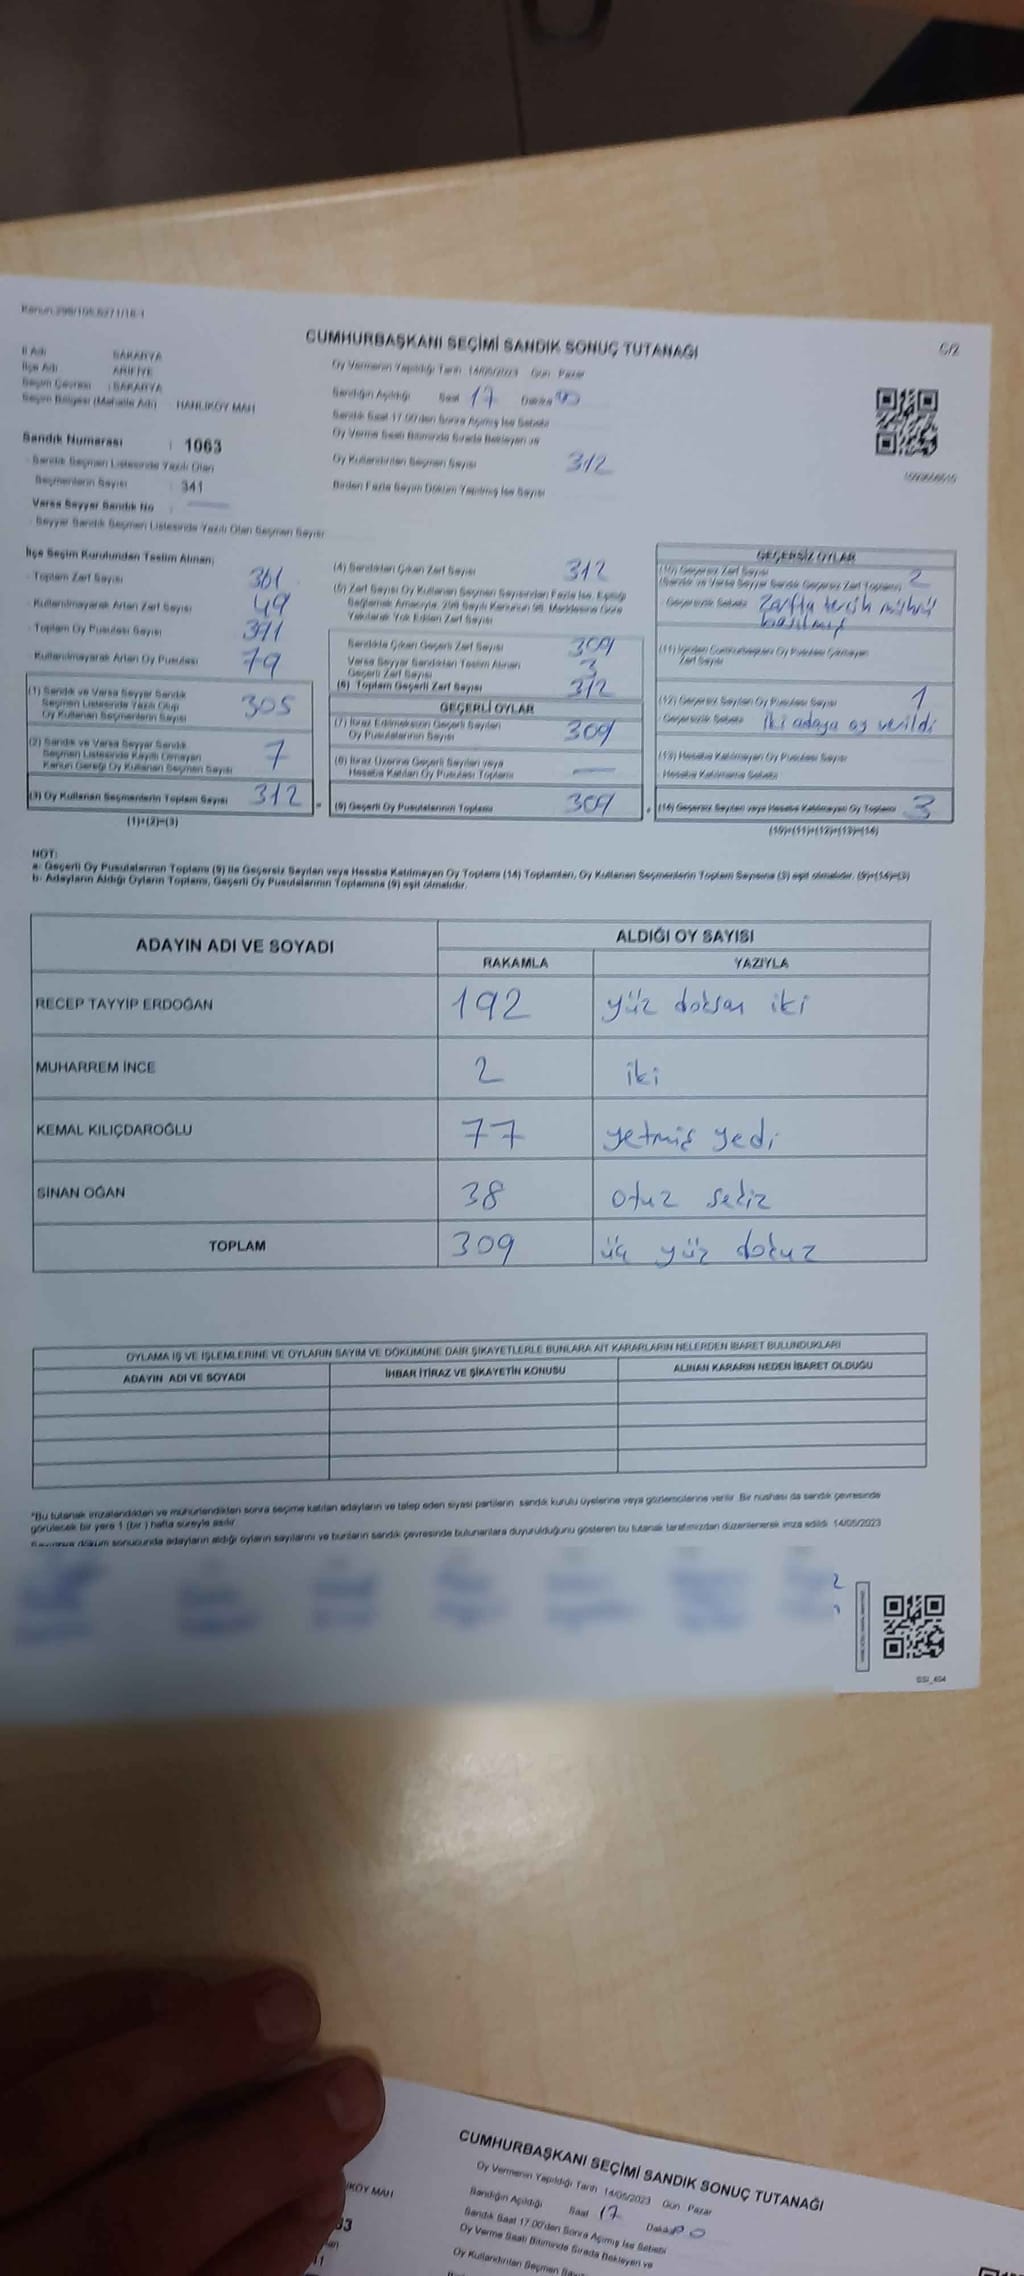 Kanun:298/105,6271/16-1
CUMHURBAŞKANI SEÇİMİ SANDIK SONUÇ TUTANAĞI
İl Adı : SAKARYA
İlçe Adı : ARİFİYE
Seçim Çevresi : SAKARYA
Seçim Bölgesi (Mahalle Adı) : HANLIKÖY MAH
Sandık Numarası : 1063
Sandık Seçmen Listesinde Yazılı Olan
Seçmenlerin Sayısı : 341
Varsa Seyyar Sandık No :
Seyyar Sandık Seçmen Listesinde Yazılı Olan Seçmen Sayısı
Oy Vermenin Yapıldığı Tarih 14/05/2023 Gün Pazar
Sandığın Açıldığı Saat 17 Dakika 00
Sandık Saat 17.00'den Sonra Açılmış İse Sebebi
Oy Verme Saati Bitiminde Sırada Bekleyen ve
Oy Kullandırılan Seçmen Sayısı 312
Birden Fazla Sayım Döküm Yapılmış İse Sayısı
İlçe Seçim Kurulundan Teslim Alınan;
Toplam Zarf Sayısı 361
Kullanılmayarak Artan Zarf Sayısı 49
Toplam Oy Pusulası Sayısı 391
Kullanılmayarak Artan Oy Pusulası 79
(1) Sandık ve Varsa Seyyar Sandık
Seçmen Listesinde Yazılı Olup
Oy Kullanan Seçmenlerin Sayısı 305
(2) Sandık ve Varsa Seyyar Sandık
Seçmen Listesinde Kayıtlı Olmayan
Kanun Gereği Oy Kullanan Seçmen Sayısı 7
(3) Oy Kullanan Seçmenlerin Toplam Sayısı 312
(1)+(2)=(3)
(4) Sandıktan Çıkan Zarf Sayısı 312
(5) Zarf Sayısı Oy Kullanan Seçmen Sayısından Fazla İse, Eşitliği
Sağlamak Amacıyla, 298 Sayılı Kanunun 98. Maddesine Göre
Yakılarak Yok Edilen Zarf Sayısı
Sandıkta Çıkan Geçerli Zarf Sayısı 309
Varsa Seyyar Sandıktan Teslim Alınan
Geçerli Zarf Sayısı 3
(6) Toplam Geçerli Zarf Sayısı 312
GEÇERLİ OYLAR
(7) İtiraz Edilmeksizin Geçerli Sayılan
Oy Pusulalarının Sayısı 309
(8) İtiraz Üzerine Geçerli Sayılan veya
Hesaba Katılan Oy Pusulası Toplamı —
(9) Geçerli Oy Pusulalarının Toplamı 309
GEÇERSİZ OYLAR
(10) Geçersiz Zarf Sayısı 2
(Sandık ve Varsa Seyyar Sandık Geçersiz Zarf Toplamı)
Geçersizlik Sebebi Zarfta tercih mührü
basılmış
Zarf Sayısı
(12) Geçersiz Sayılan Oy Pusulası Sayısı 1
Geçersizlik Sebebi İki adaya oy verildi
(13) Hesaba Katılmayan Oy Pusulası Sayısı
Hesaba Katılmama Sebebi
(14) Geçersiz Sayılan veya Hesaba Katılmayan Oy Toplamı 3
(10)+(11)+(12)+(13)=(14)
NOT:
a- Geçerli Oy Pusulalarının Toplamı (9) ile Geçersiz Sayılan veya Hesaba Katılmayan Oy Toplamı (14) Toplamları, Oy Kullanan Seçmenlerin Toplam Sayısına (3) eşit olmalıdır. (9)+(14)=(3)
b- Adayların Aldığı Oyların Toplamı, Geçerli Oy Pusulalarının Toplamına (9) eşit olmalıdır.
ADAYIN ADI VE SOYADI ALDIĞI OY SAYISI
RAKAMLA YAZIYLA
RECEP TAYYİP ERDOĞAN 192 yüz doksan iki
MUHARREM İNCE 2 iki
KEMAL KILIÇDAROĞLU 77 yetmiş yedi
SİNAN OĞAN 38 otuz sekiz
TOPLAM 309 üç yüz dokuz
OYLAMA İŞ VE İŞLEMLERİNE VE OYLARIN SAYIM VE DÖKÜMÜNE DAİR ŞİKAYETLERLE BUNLARA AİT KARARLARIN NELERDEN İBARET BULUNDUKLARI
ADAYIN ADI VE SOYADI İHBAR İTİRAZ VE ŞİKAYETİN KONUSU ALINAN KARARIN NEDEN İBARET OLDUĞU
"Bu tutanak imzalandıktan ve mühürlendikten sonra seçime katılan adayların ve talep eden siyasi partilerin sandık kurulu üyelerine veya gözlemcilerine verilir. Bir nüshası da sandık çevresinde
görülecek bir yere 1 (bir) hafta süreyle asılır.
döküm sonucunda adayların aldığı oyların sayılarını ve bunların sandık çevresinde bulunanlara duyurulduğunu gösteren bu tutanak tarafımızdan düzenlenerek imza edildi. 14/05/2023
CUMHURBAŞKANI SEÇİMİ SANDIK SONUÇ TUTANAĞI
Oy Vermenin Yapıldığı Tarih 14/05/2023 Gün Pazar
Sandığın Açıldığı Saat 17 Dakika 00
Sandık Saat 17.00'den Sonra Açılmış İse Sebebi
Oy Verme Saati Bitiminde Sırada Bekleyen ve
Oy Kullandırılan Seçmen